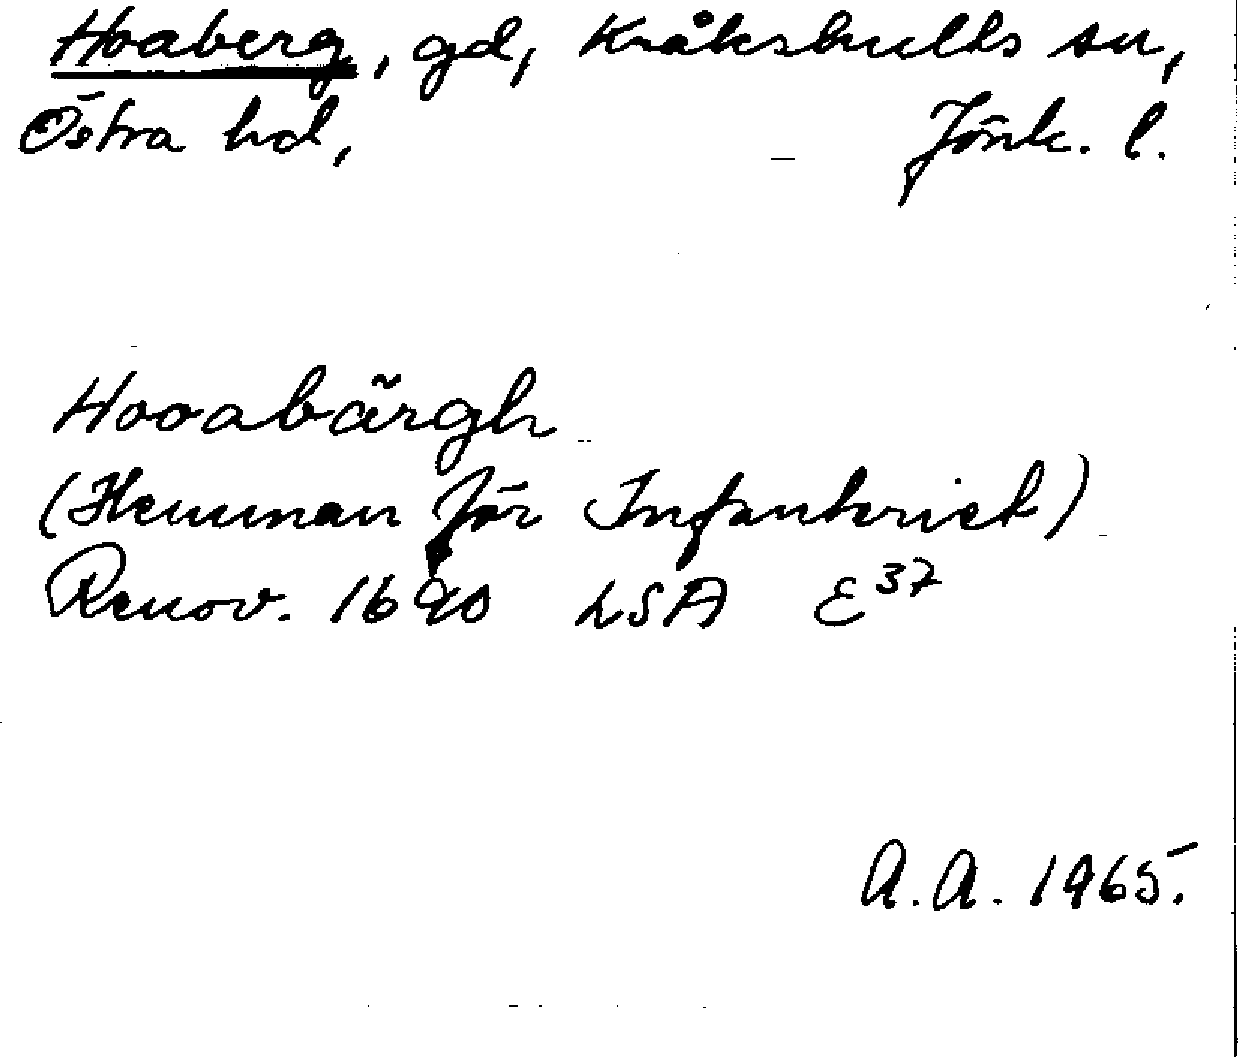 Hoaberg, gd, Kråkshults sn,
Östra hd, Jönk. l.
Hooabärgh
(Hemman för Infanteriet)
Renov. 1690 LSA E37
A.A. 1965.